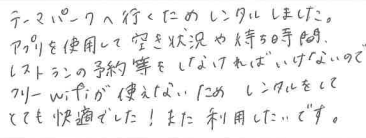 テーマパークへ行くためレンタルしました。
アプリを使用して空き状況や待ち時間、
レストランの予約等をしなければいけないので
フリーwifiが使えないためレンタルをして
とても快適でした！また利用したいです。